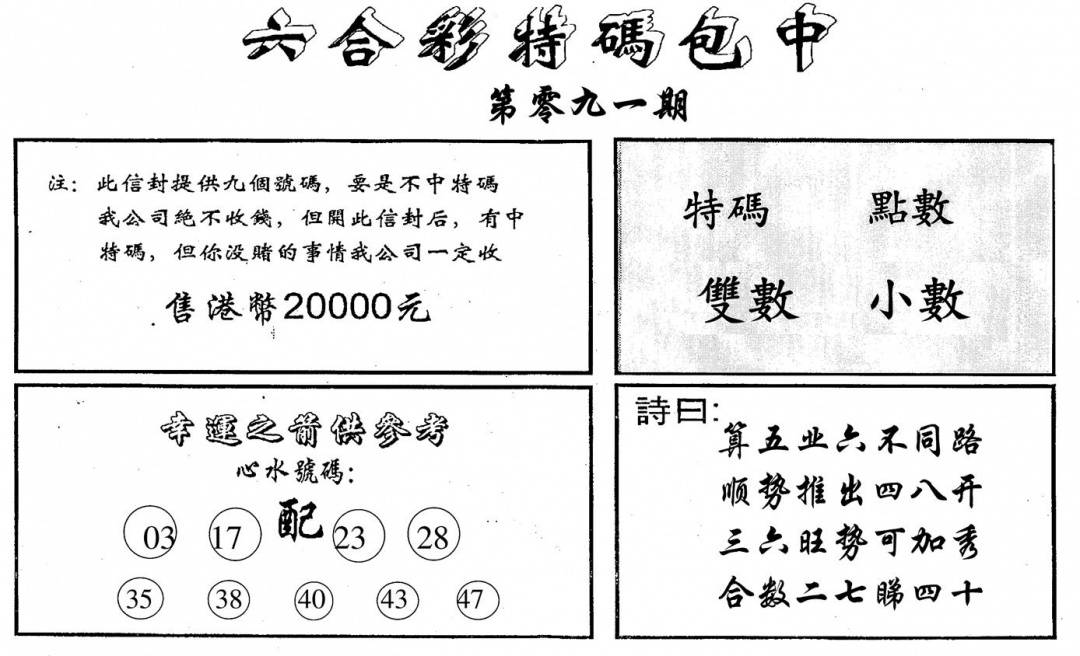 六合彩特碼包中
第零九一期
注：此信封提供九個號碼，要是不中特碼
我公司絶不收錢，但開此信封后，有中
特碼，但你没賭的事情我公司一定收
售港幣20000元
特碼 點數
雙數 小數
幸運之箭供參考
心水號碼：
配
03 17 23 28
35 38 40 43 47
詩曰：
算五业六不同路
顺势推出四八开
三六旺势可加秀
合数二七睇四十